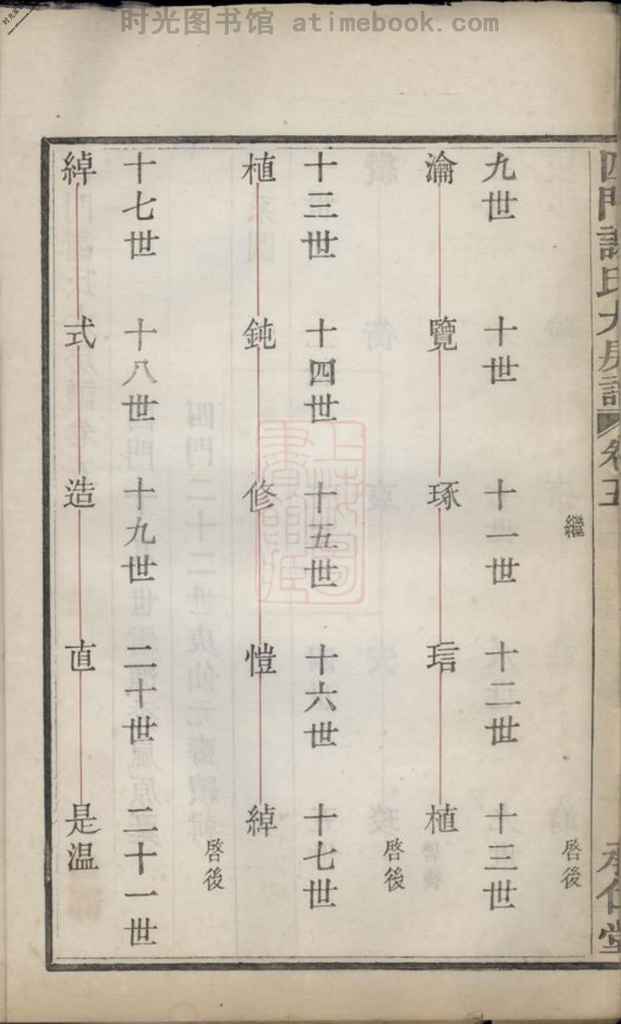 时光图书馆 atimebook.com
四門謝氏大房譜 卷五 承仁堂
繼 啓後
九世 十世 十一世 十二世 十三世
瀹 覽 琢 琂 植
啓後
十三世 十四世 十五世 十六世 十七世
植 鈍 修 愷 綽
啓後
十七世 十八世 十九世 二十世 二十一世
綽 式 造 直 是溫